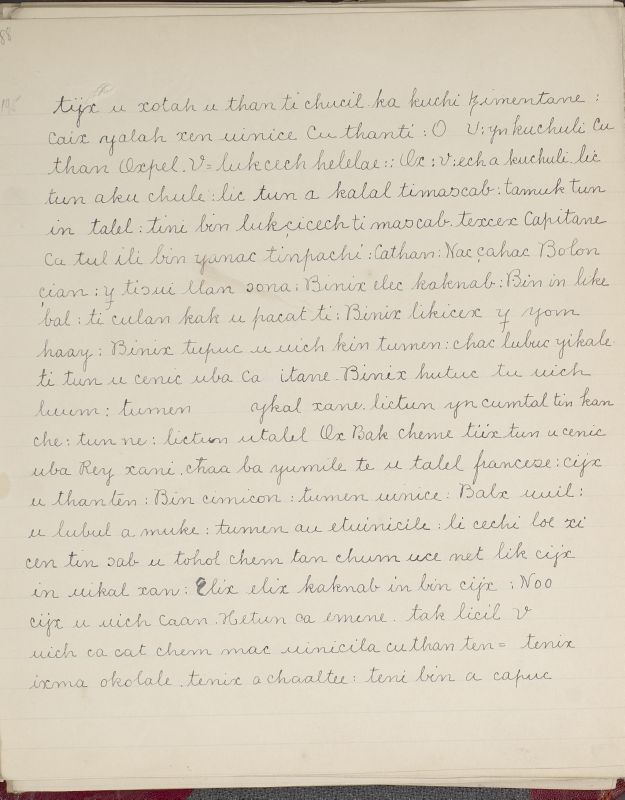 88
tijx u xotah u than ti chucil ka kuchi ꜩimentane :
Caix yalah xen uinice Cu thanti : O V : yn kuchuli Cu
than Oxpel . V = lukcech helelae :: Ox : V : ech a kuchuli lic
tun aku chule : lic tun a kalal timascab : tamuk tun
in talel : tini bin luk çicech ti mascab . texcex Capitane
Ca tul ili bin yanac tinpachi : Cathan : Nac çahac Bolon
çian : y tiɔui llan ɔona : Binix elec kaknab : Bin in like
bal : ti culan kak u pacat ti : Binix likicex y yom
haay : Binix tupuc u uich kin tumen : chac lubuc yikale
ti tun u cenic uba Ca itane . Binix hutuc tu uich
luum : tumen ykal xane . lictun yn cumtal tin kan
che : tun ne : lictun utalel Ox Bak cheme tiix tun u cenic
uba Rey xani . chaa ba yumile te u talel franceꜩe : cijx
u than ten : Bin cimicon : tumen uinice : Balx uuil :
u lubul a muke : tumen au etuinicile : li cechi loe xi
cen tin ɔab u tohol chem tan chum uce net lik cijx
in uikal xan : Elix elix kaknab in bin cijx : Noo
cijx u uich Caan . Hetun ca emene . tak licil V
uich ca cat chem mac uinicila cuthan ten = tenix
ixma okolale . tenix a chaaltee : teni bin a capuc